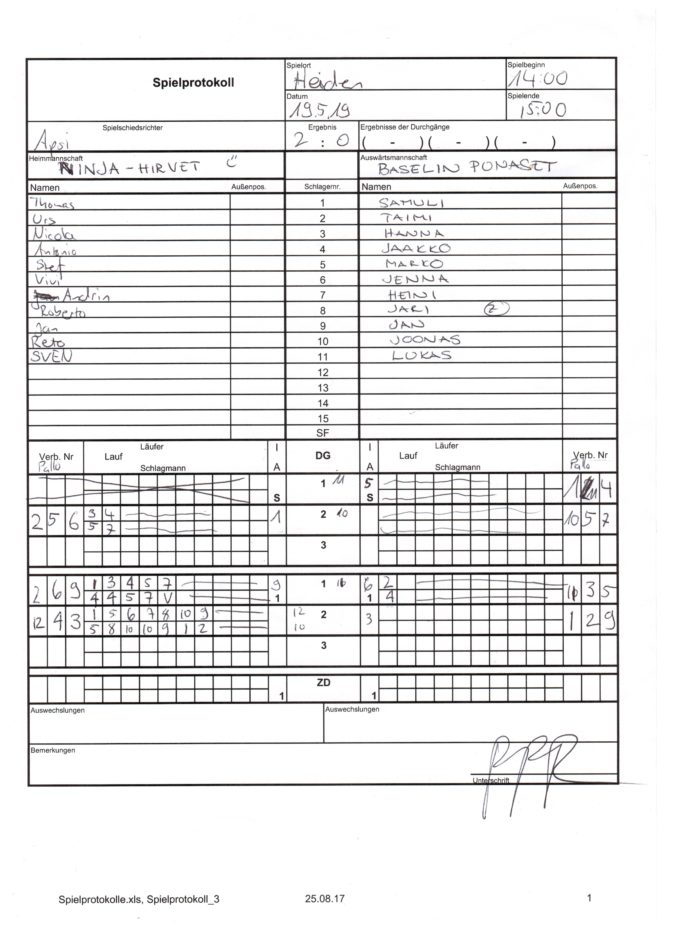 Spielprotokoll
Spielort
Heiden
Spielbeginn
14:00
Datum
19.5.19
Spielende
15:00
Spielschiedsrichter
Apsi
Ergebnis
2 : 0
Ergebnisse der Durchgänge
( - ) ( - ) ( - )
Heimmannschaft
NINJA-HIRVET
Auswärtsmannschaft
BASELIN PONASET
Namen Außenpos. Schlagernr. Namen Außenpos.
Thomas 1 SAMULI
Urs 2 TAIMI
Nicola 3 HANNA
Antonio 4 JAAKKO
Stef 5 MARKO
Vivi 6 JENNA
Andrin 7 HEINI
Roberto 8 JARI 2
Jan 9 JAN
Reto 10 JOONAS
SVEN 11 LUKAS
12
13
14
15
SF
Läufer I DG I Läufer
Verb. Nr Lauf Lauf Verb. Nr
Pallo Schlagmann A A Schlagmann Pallo
1 11 5 1 4
S S
2 5 6 3 4 1 2 10 10 5 7
5 7
3
2 6 9 1 3 4 5 7 9 1 6 2 3 5
4 4 5 7 V 1 1 4
12 4 3 1 5 6 7 8 10 9 12 2 3 1 2 9
5 8 10 10 9 1 2 10
3
ZD
1 1
Auswechslungen Auswechslungen
Bemerkungen
Unterschrift
Spielprotokolle.xls, Spielprotokoll_3 25.08.17 1